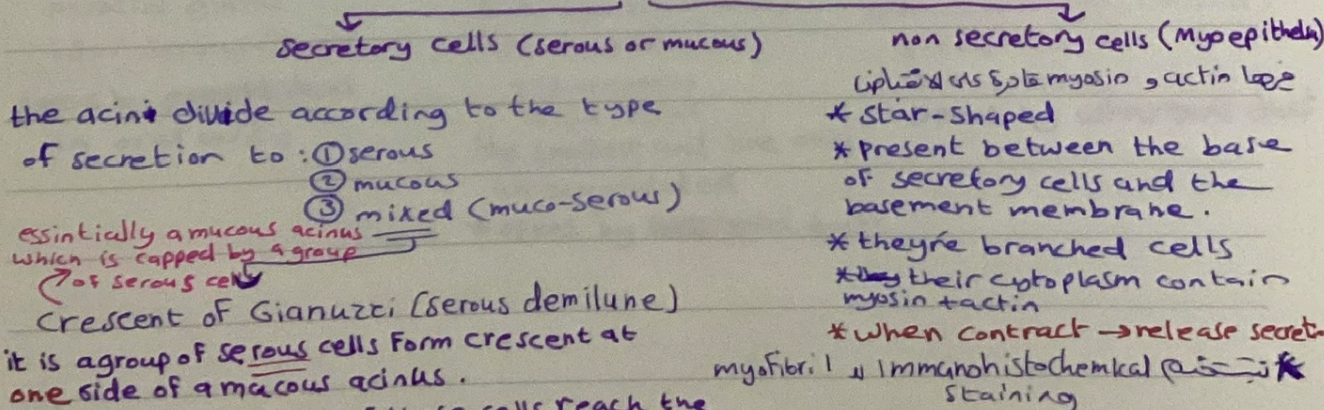 secretory cells (serous or mucous)
the acini divide according to the type
of secretion to : ① serous
② mucous
③ mixed (muco-serous)
essintially a mucous acinus
which is capped by a group
of serous cells
Crescent of Gianuzzi (serous demilune)
it is a group of serous cells form crescent at
one side of a mucous acinus.
cells reach the
non secretory cells (Myoepithelia)
myosin , actin
* Star-shaped
* present between the base
of secretory cells and the
basement membrane.
* they're branched cells
* their cytoplasm contain
myosin + actin
* when contract → release secret
myofibril Immunohistochemkal
staining